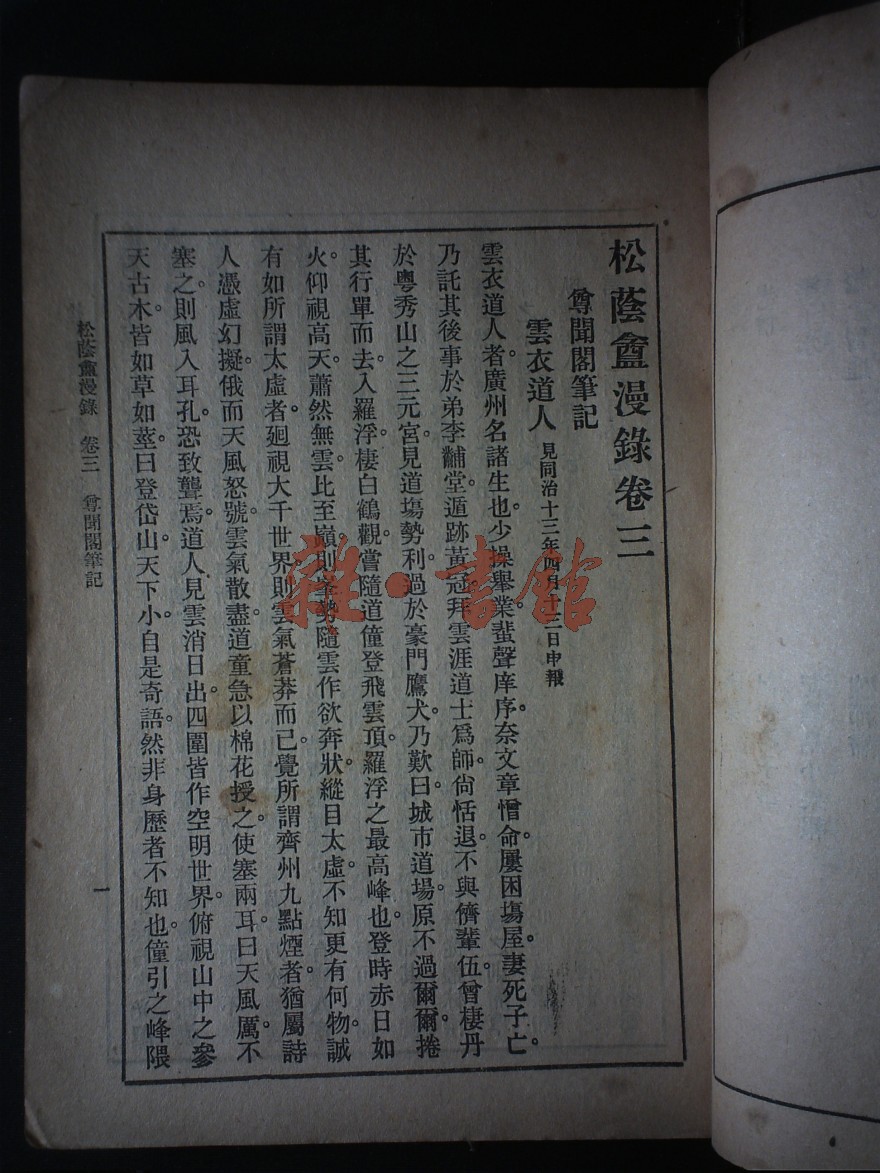 松蔭盦漫錄卷三
尊聞閣筆記
雲衣道人 見同治十三年四月十三日申報
雲衣道人者。廣州名諸生也。少操舉業。蜚聲庠序。奈文章憎命。屢困塲屋。妻死子亡。
乃託其後事於弟李黼堂。遁跡黃冠。拜雲涯道士爲師。尙恬退。不與儕輩伍。曾棲丹
於粵秀山之三元宮。見道塲勢利。過於豪門鷹犬。乃歎曰。城市道場。原不過爾爾。捲
其行單而去。入羅浮。棲白鶴觀。嘗隨道僮登飛雲頂。羅浮之最高峰也。登時赤日如
火。仰視高天。蕭然無雲。比至巔。則峯勢隨雲作欲奔狀。縱目太虛。不知更有何物。誠
有如所謂太虛者。廻視大千世界。則雲氣蒼莽而已。覺所謂齊州九點煙者。猶屬詩
人憑虛幻擬。俄而天風怒號。雲氣散盡。道童急以棉花授之。使塞兩耳。曰天風厲。不
塞之。則風入耳孔。恐致聾焉。道人見雲消日出。四圍皆作空明世界。俯視山中之參
天古木。皆如草如莖。曰登岱山。天下小。自是奇語。然非身歷者不知也。僮引之峰隈
松蔭盦漫錄 卷三 尊聞閣筆記
一
雜·書館